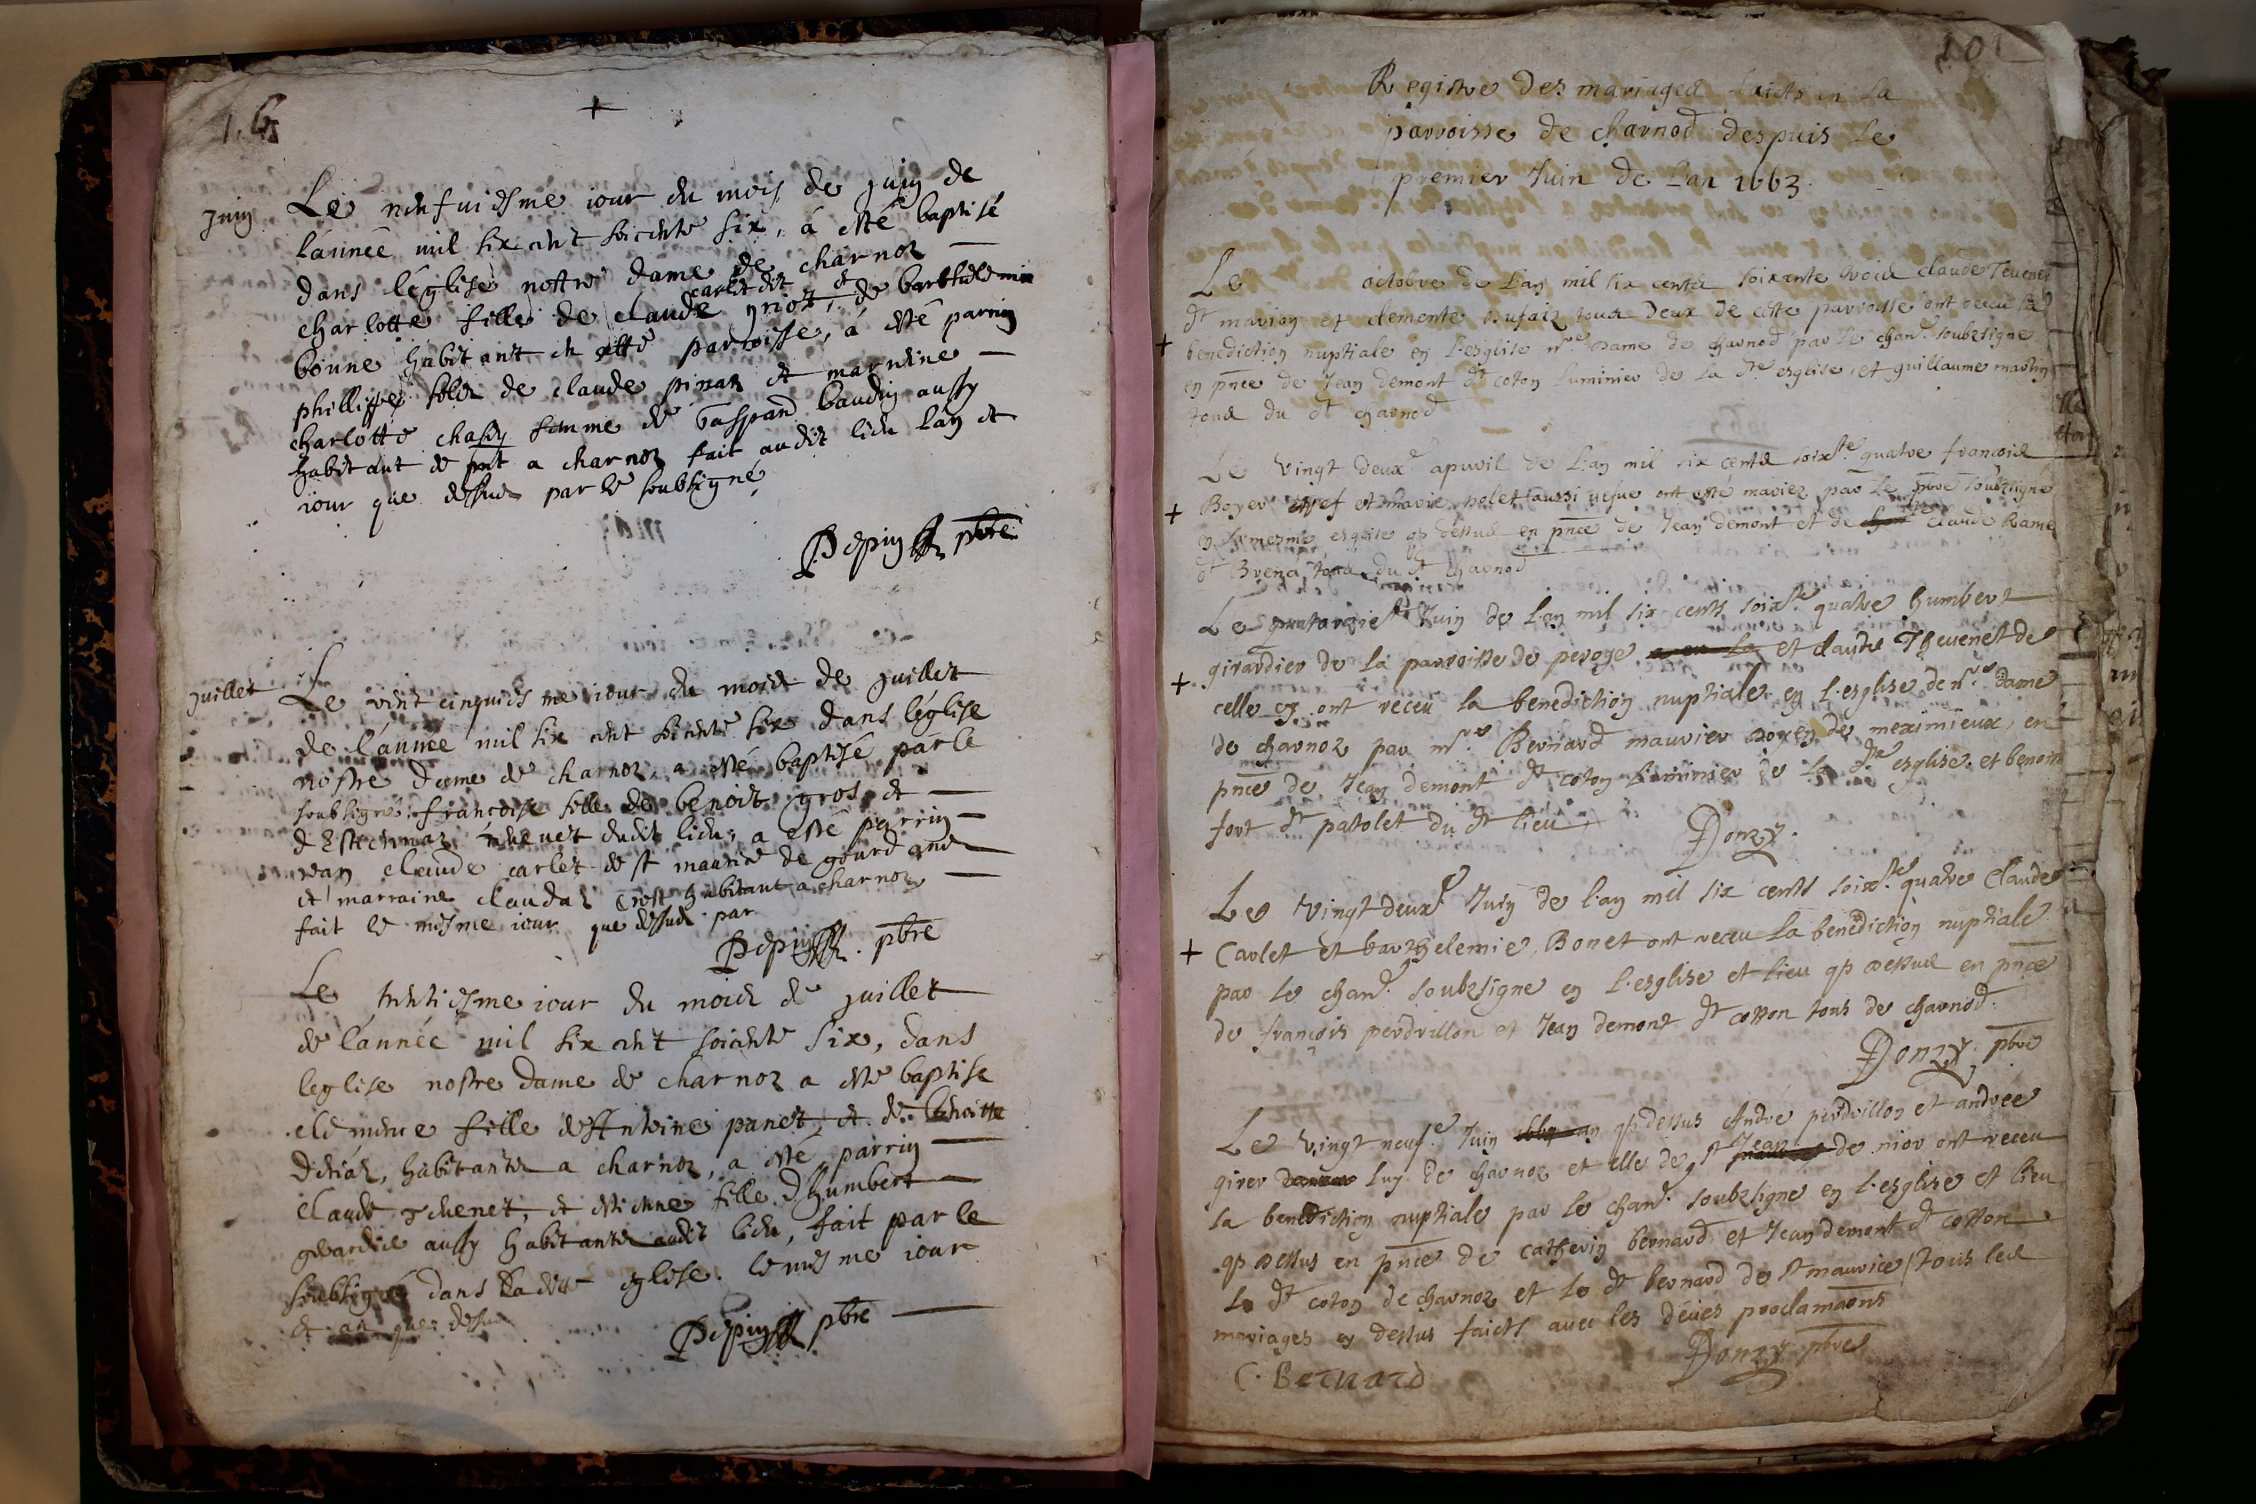 Juin
Le neufuiesme iour du mois de juin de
l'année mil six cent soicente six, a esté baptisé
dans l'eglise nostre dame de charnoz
carlet dit et
charlotte fille de claude de barthelemie
bonne habitant en cette parroisse, a esté parrin
phillippe filz de claude pinaz et marreine
charlotte femme de gaspard baudin aussy
habitant de pnt a charnoz fait audit lieu l'an et
iour que dessus par le soubsigné
Pepin pbre
juillet
Le vint cinquiesme iour du mois de juillet
de l'année mil six cent soicente six dans l'eglise
nostre dame de charnoz, a esté baptisé par le
soubsigné, francoise fille de benoit gros et
d'Estiennaz dudit lieu, a esté parrin
iean claude carlet de st maurice de gourdans
et marraine claudaz habitant a charnoz
fait le mesme iour que dessus par
Pepin pbre
Le trentiesme iour du mois de juillet
de l'année mil six cent soicente six, dans
l'eglise nostre dame de charnoz a esté baptise
clemence fille d'Antoine panet, et de benoitte
habitants a charnoz, a esté parrin
claude et estienne fille d'humbert
girardier aussy habitants audit lieu, fait par le
soubsigné dans ladite eglise. le mesme iour
et an que dessus
Pepin pbre
101
Registre des mariages faicts en la
parroisse de charnod despuis le
premier Juin de l'an 1663.
Le octobre de l'an mil six cents soixante trois claude Teuenet
dt marion et clemente tous deux de cette parroisse ont receu la
benediction nuptiale en l'esglise nre Dame de charnod par le chane soubsigné
en pnce de Jean demont dt coton luminier de la dte esglise et guillaume martin
tous du dt charnod
Le vingt deuxe apuril de l'an mil six cents soixte quatre francois
Boyer vef et marie polet aussi vefue ont esté mariez par le pbre soubsigné
en la mesme esglise que dessus en pnce de Jean demont et de claude Rame
dt Brena tous du dt charnod
Le Juin de l'an mil six cents soixte quatre humbert
girardier de la parroisse de peroge et claude Theuenet de
celle cy ont receu la benediction nuptiale en l'esglise de nre dame
de charnoz par mre Bernard maurier doyen de meximieux, en
pnce de Jean demont dt coton luminier de la dte esglise et benoit
fort dt patolet du dt lieu
Donzy.
Le vingt deuxe Juin de l'an mil six cents soixte quatre Claude
Carlet et barthelemie Bonet ont receu la benediction nuptiale
par le chane soubsigne en l'esglise et lieu que dessus en pnce
de françois perdrillon et Jean demont dt cotton tous de charnod.
Donzy pbre
Le vingt neufe Juin an que dessus Andre perdrillon et andree
girer luy de charnoz et elle de st Jean de nior ont receu
la benediction nuptiale par le chane soubsigne en l'esglise et lieu
que dessus en pnce de catherin bernard et Jean demont dt cotton
le dt coton de charnoz et le dt bernard de st maurice / tous les
mariages cy dessus faicts auec les deües proclamaons
Donzy pbre
C. Bernard